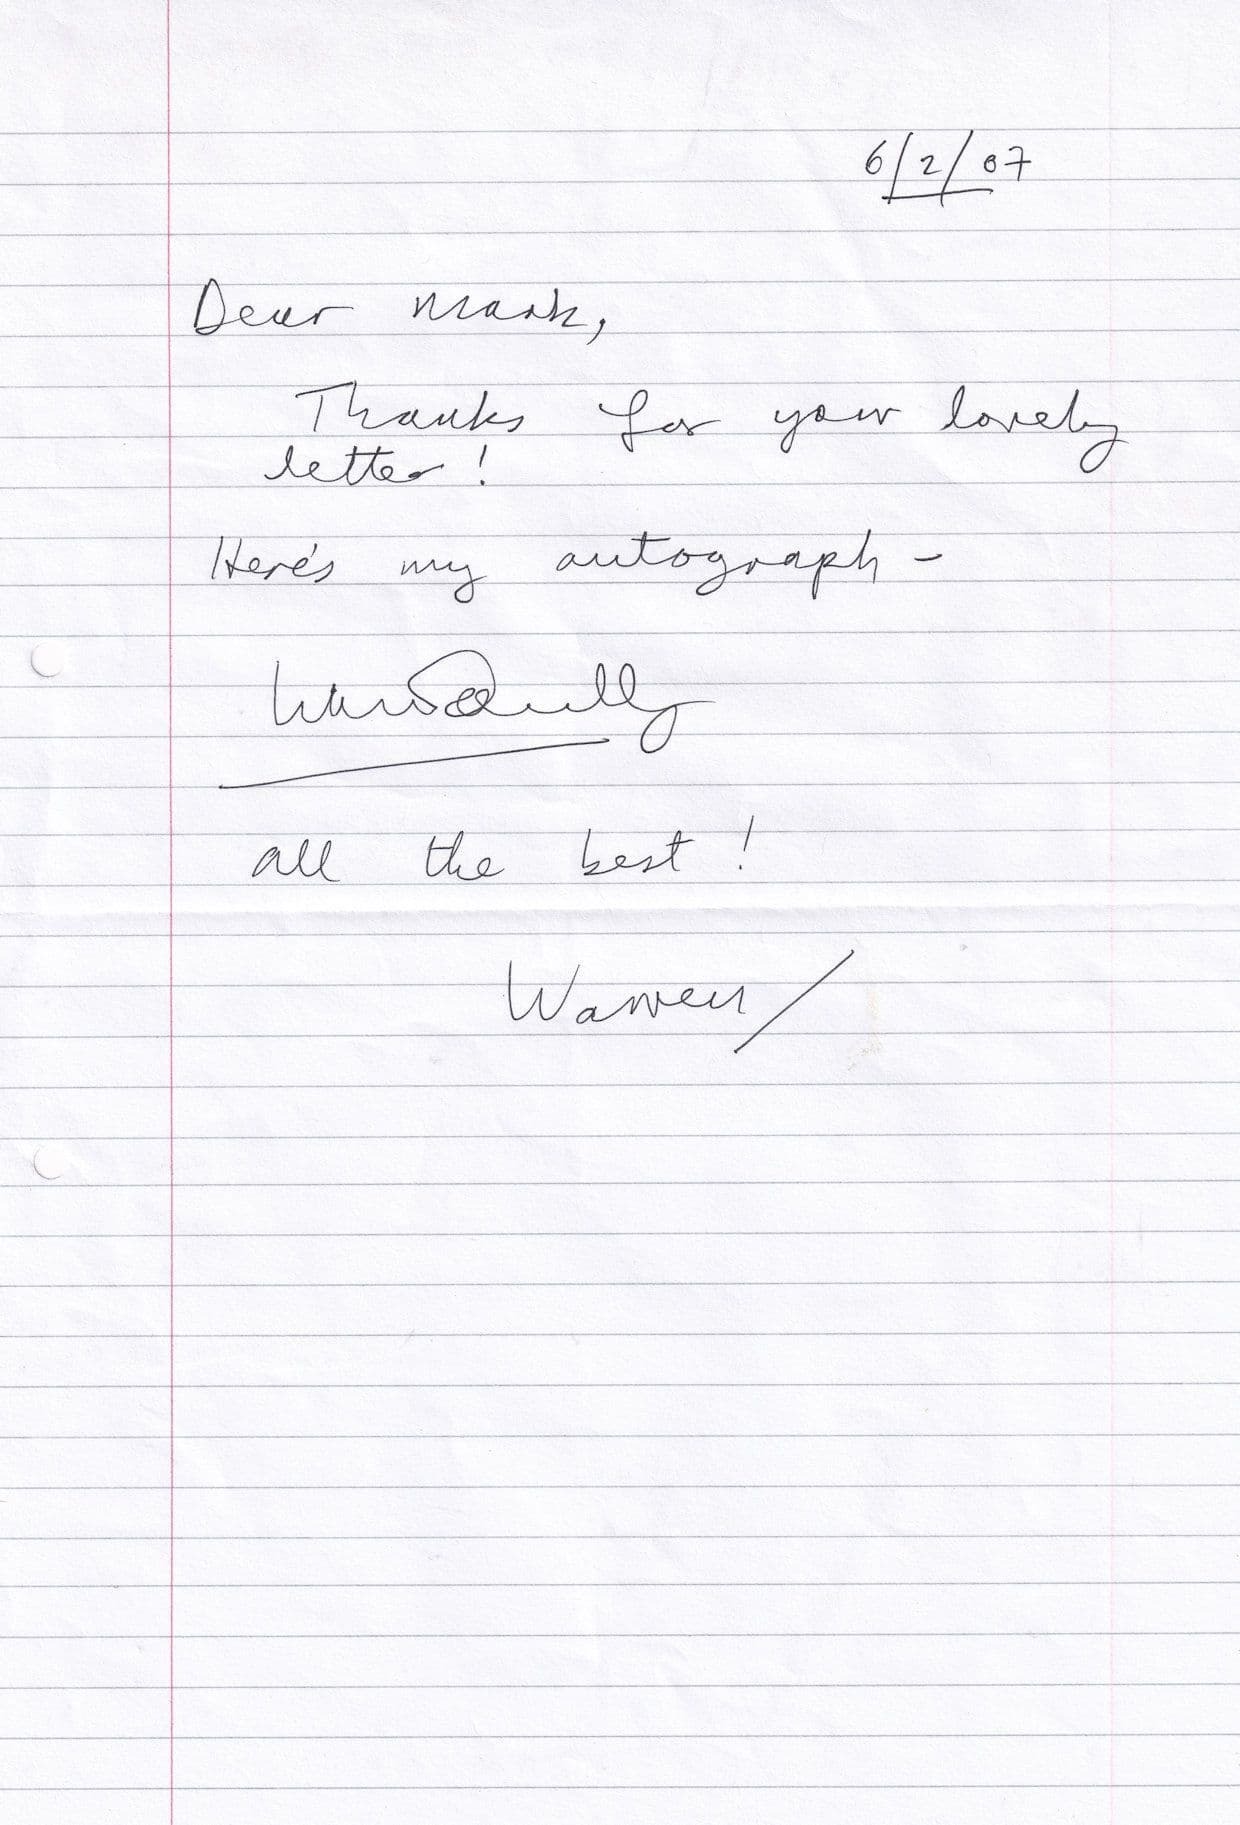 6/2/07
Dear Mark,
Thanks for your lovely
letter!
Here's my autograph -
all the best!
Warren/